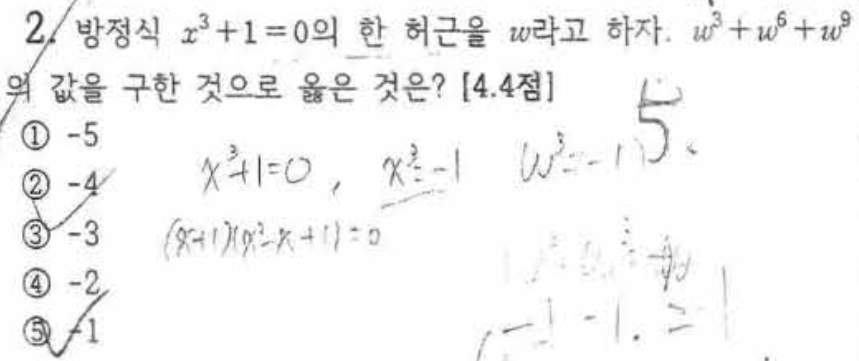 2. 방정식 x³+1=0의 한 허근을 w라고 하자. w³+w⁶+w⁹
의 값을 구한 것으로 옳은 것은? [4.4점]
① -5
② -4
③ -3
④ -2
⑤ -1
x³+1=0, x³=-1 w³=-1
5.
(x+1)(x²-x+1)=0